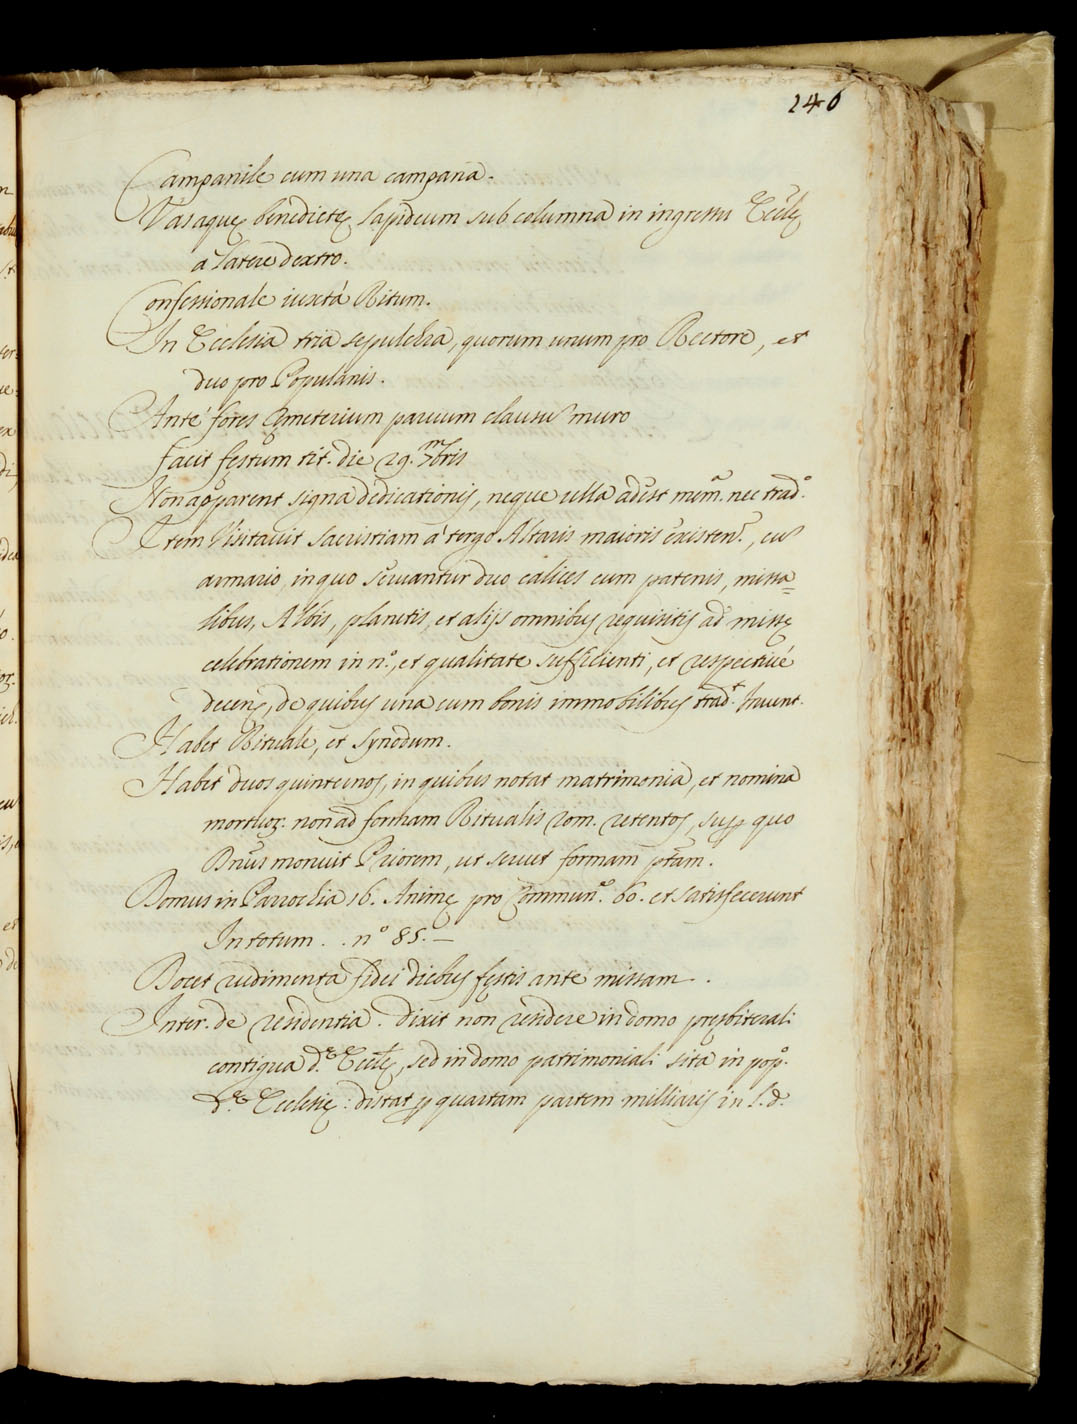 246
Campanile cum una campana.
Vas aquę benedictę lapideum sub columna in ingressu Ecclę
a latere dextro.
Confessionale iuxtà Ritum.
In Ecclesia tria sepulchra, quorum unum pro Rectore, et
duo pro Popularis.
Antè fores Cęmeterium paruum clausũ muro
facit festum tit. die 29. 7mbris
Non apparent signa dedicationis, neque ulla adest mem.ª nec trad.º
Item Visitauit Sacristiam à tergo Altaris maioris existen., cũ
armario, in quo seruantur duo calices cum patenis, missa=
libus, Albis, planetis, et alijs omnibus requisitis ad missę
celebrationem in n.º, et qualitate sufficienti, et respectiuè
decenţ, de quibus una cum bonis immobilibus trad.t Inuent.
Habet Rituale, et synodum.
Habet duos quinternos, in quibus notat matrimonia, et nomina
mortuoꝝ. non ad formam Ritualis Rom. retentos, supꝫ quo
Dñus monuit Priorem, ut seruet formam pᵗam.
Domus in Parrochia 16. Animę pro Commun.e 60. et satisfecerunt
In totum . . n.º 85. —
Docet rudimenta fidei diebus festis antè missam .
Inter. de residentia. dixit non residere in domo presbiterali
contigua d.ę Ecclę, sed in domo patrimoniali sita in pop.º
d.ę Ecclesię : distat ꝑ quartam partem milliaris in s.a.